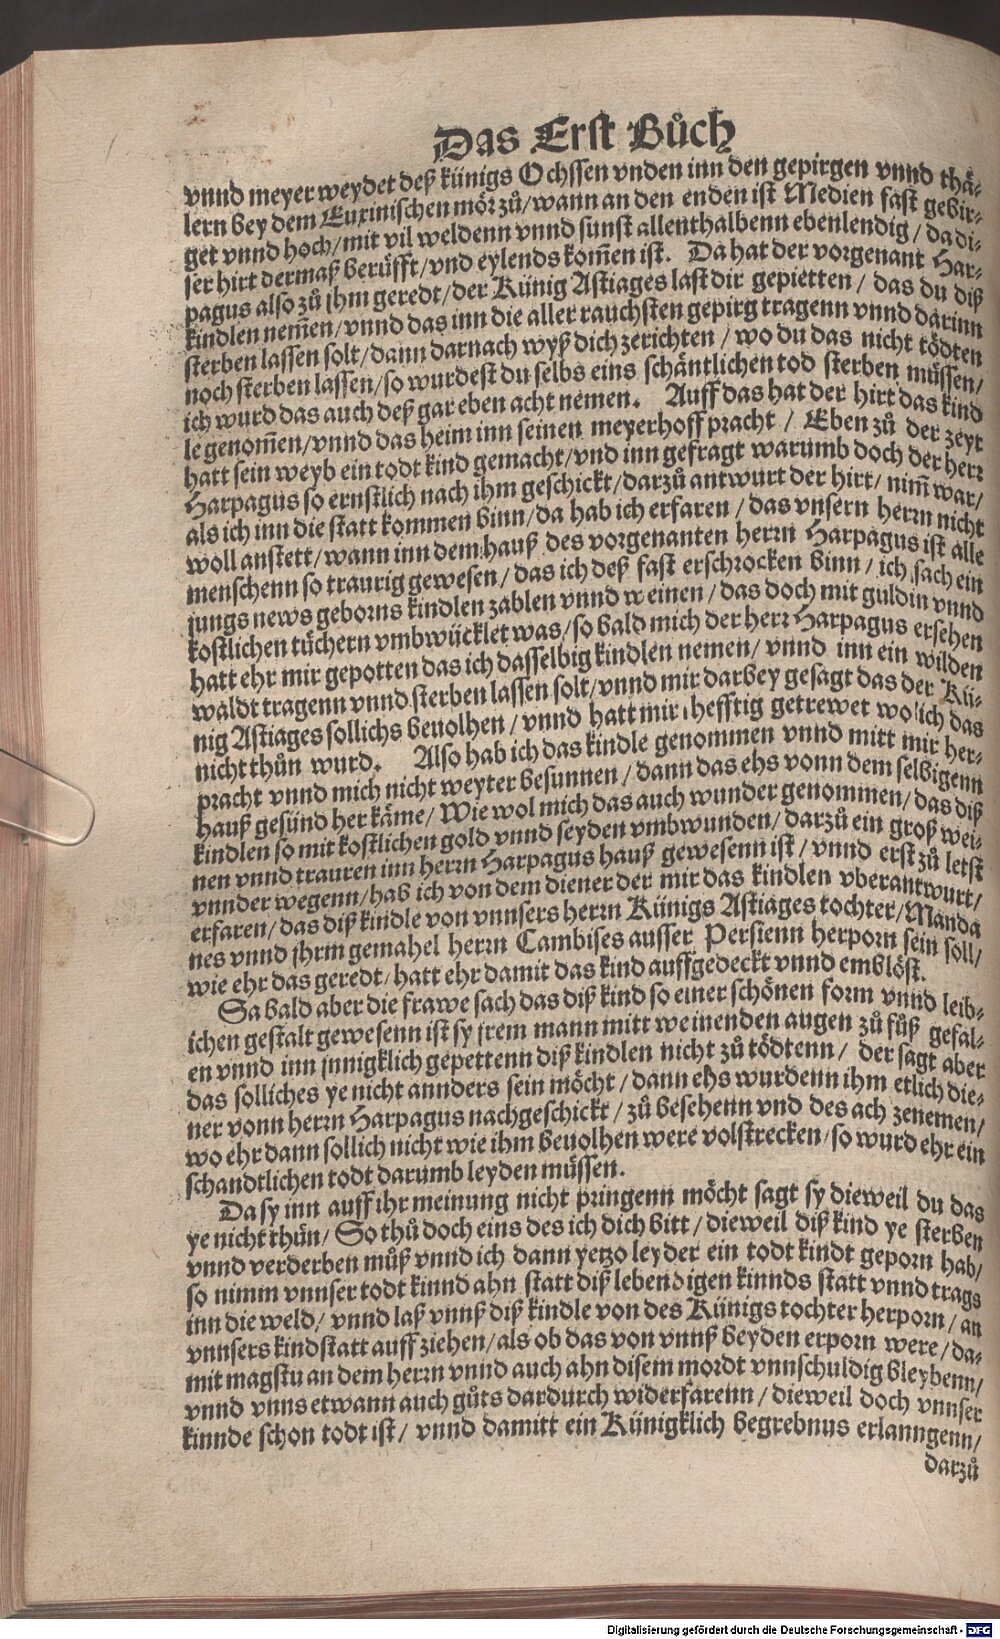 Das Erst Bůch
vnnd meyer weydet deß künigs Ochssen vnden inn den gepirgen vnnd thä-
lern bey dem Euxinischen mör zů/ wann an den enden ist Medien fast gebir-
get vnnd hoch/ mit vil weldenn vnnd sunst allenthalbenn ebenlendig/ da di-
ser hirt dermaß berüfft/ vnd eylends kom̃en ist. Da hat der vorgenant Har-
pagus also zů jhm geredt/ der Künig Astiages last dir gepietten/ das du diß
kindlen nem̃en/ vnnd das inn die aller rauchsten gepirg tragenn vnnd darinn
sterben lassen solt/ dann darnach wyß dich zerichten/ wo du das nicht tödten
noch sterben lassen/ so wurdest du selbs eins schäntlichen tod sterben müssen/
ich wurd das auch deß gar eben acht nemen. Auff das hat der hirt das kind
le genom̃en/ vnnd das heim inn seinen meyerhoff pracht/ Eben zů der zeyt
hatt sein weyb ein todt kind gemacht/ vnd inn gefragt warumb doch der herr
Harpagus so ernstlich nach ihm geschickt/ darzů antwurt der hirt/ nim̃ war/
als ich inn die statt kommen binn/ da hab ich erfaren/ das vnsern herrn nicht
woll anstett/ wann inn dem hauß des vorgenanten herrn Harpagus ist alle
menschenn so traurig gewesen/ das ich deß fast erschrocken binn/ ich sach ein
jungs news geborns kindlen zablen vnnd weinen/ das doch mit guldin vnnd
kostlichen tüchern vmbwücklet was/ so bald mich der herr Harpagus ersehen
hatt ehr mir gepotten das ich dasselbig kindlen nemen/ vnnd inn ein wilden
waldt tragenn vnnd sterben lassen solt/ vnnd mir darbey gesagt das der Kü-
nig Astiages sollichs beuolhen/ vnnd hatt mir hefftig getrewet wo ich das
nicht thůn wurd. Also hab ich das kindle genommen vnnd mitt mir her-
pracht vnnd mich nicht weyter besunnen/ dann das ehs vonn dem selbigenn
hauß gesünd her käme/ Wie wol mich das auch wunder genommen/ das diß
kindlen so mit kostlichen gold vnnd seyden vmbwunden/ darzů ein groß wei-
nen vnnd trauren inn herrn Harpagus hauß gewesenn ist/ vnnd erst zů letst
vnnder wegenn/ hab ich von dem diener der mir das kindlen vberantwurt/
erfaren/ das diß kindle von vnnsers herrn Künigs Astiages tochter/ Manda
nes vnnd jhrm gemahel herrn Cambises ausser Persienn herporn sein soll/
wie ehr das geredt/ hatt ehr damit das kind auffgedeckt vnnd emblöst.
Sa bald aber die frawe sach das diß kind so einer schönen form vnnd leib-
ichen gestalt gewesenn ist sy jrem mann mitt weinenden augen zů fůß gefal-
en vnnd inn jnnigklich gepettenn diß kindlen nicht zů tödtenn/ der sagt aber
das solliches ye nicht annders sein möcht/ dann ehs wurdenn ihm etlich die-
ner vonn herrn Harpagus nachgeschickt/ zů besehenn vnd des ach zenemen/
wo ehr dann sollich nicht wie ihm beuolhen were volstrecken/ so wurd ehr ein
schandtlichen todt darumb leyden müssen.
Da sy inn auff ihr meinung nicht pringenn möcht sagt sy dieweil du das
ye nicht thůn/ So thů doch eins des ich dich bitt/ dieweil diß kind ye sterben
vnnd verderben můß vnnd ich dann yetzo leyder ein todt kindt geporn hab/
so nimm vnnser todt kinnd ahn statt diß lebendigen kinnds statt vnnd trags
inn die weld/ vnnd laß vnnß diß kindle von des Künigs tochter herporn/ an
vnnsers kindstatt auff ziehen/ als ob das von vnnß beyden erporn were/ da-
mit magstu an dem herrn vnnd auch ahn disem mordt vnnschuldig bleybenn/
vnnd vnns etwann auch gůts dardurch widerfarenn/ dieweil doch vnnser
kinnde schon todt ist/ vnnd damitt ein Künigklich begrebnus erlanngenn/
darzů
Digitalisierung gefördert durch die Deutsche Forschungsgemeinschaft - DFG